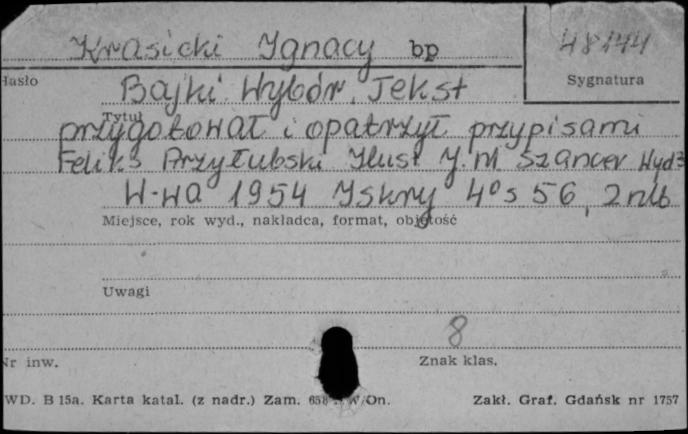 Krasicki Ignacy bp
48144
Hasło
Sygnatura
Bajki Wybór. Tekst
Tytuł
przygotował i opatrzył przypisami
Feliks Przyłubski Ilust J. M. Szancer Wyd 3
W-wa 1954 Iskry 4° s 56, 2 nlb
Miejsce, rok wyd., nakładca, format, objętość
Uwagi
8
Nr inw.
Znak klas.
WD. B 15a. Karta katal. (z nadr.) Zam. W/On.
Zakł. Graf. Gdańsk nr 1757